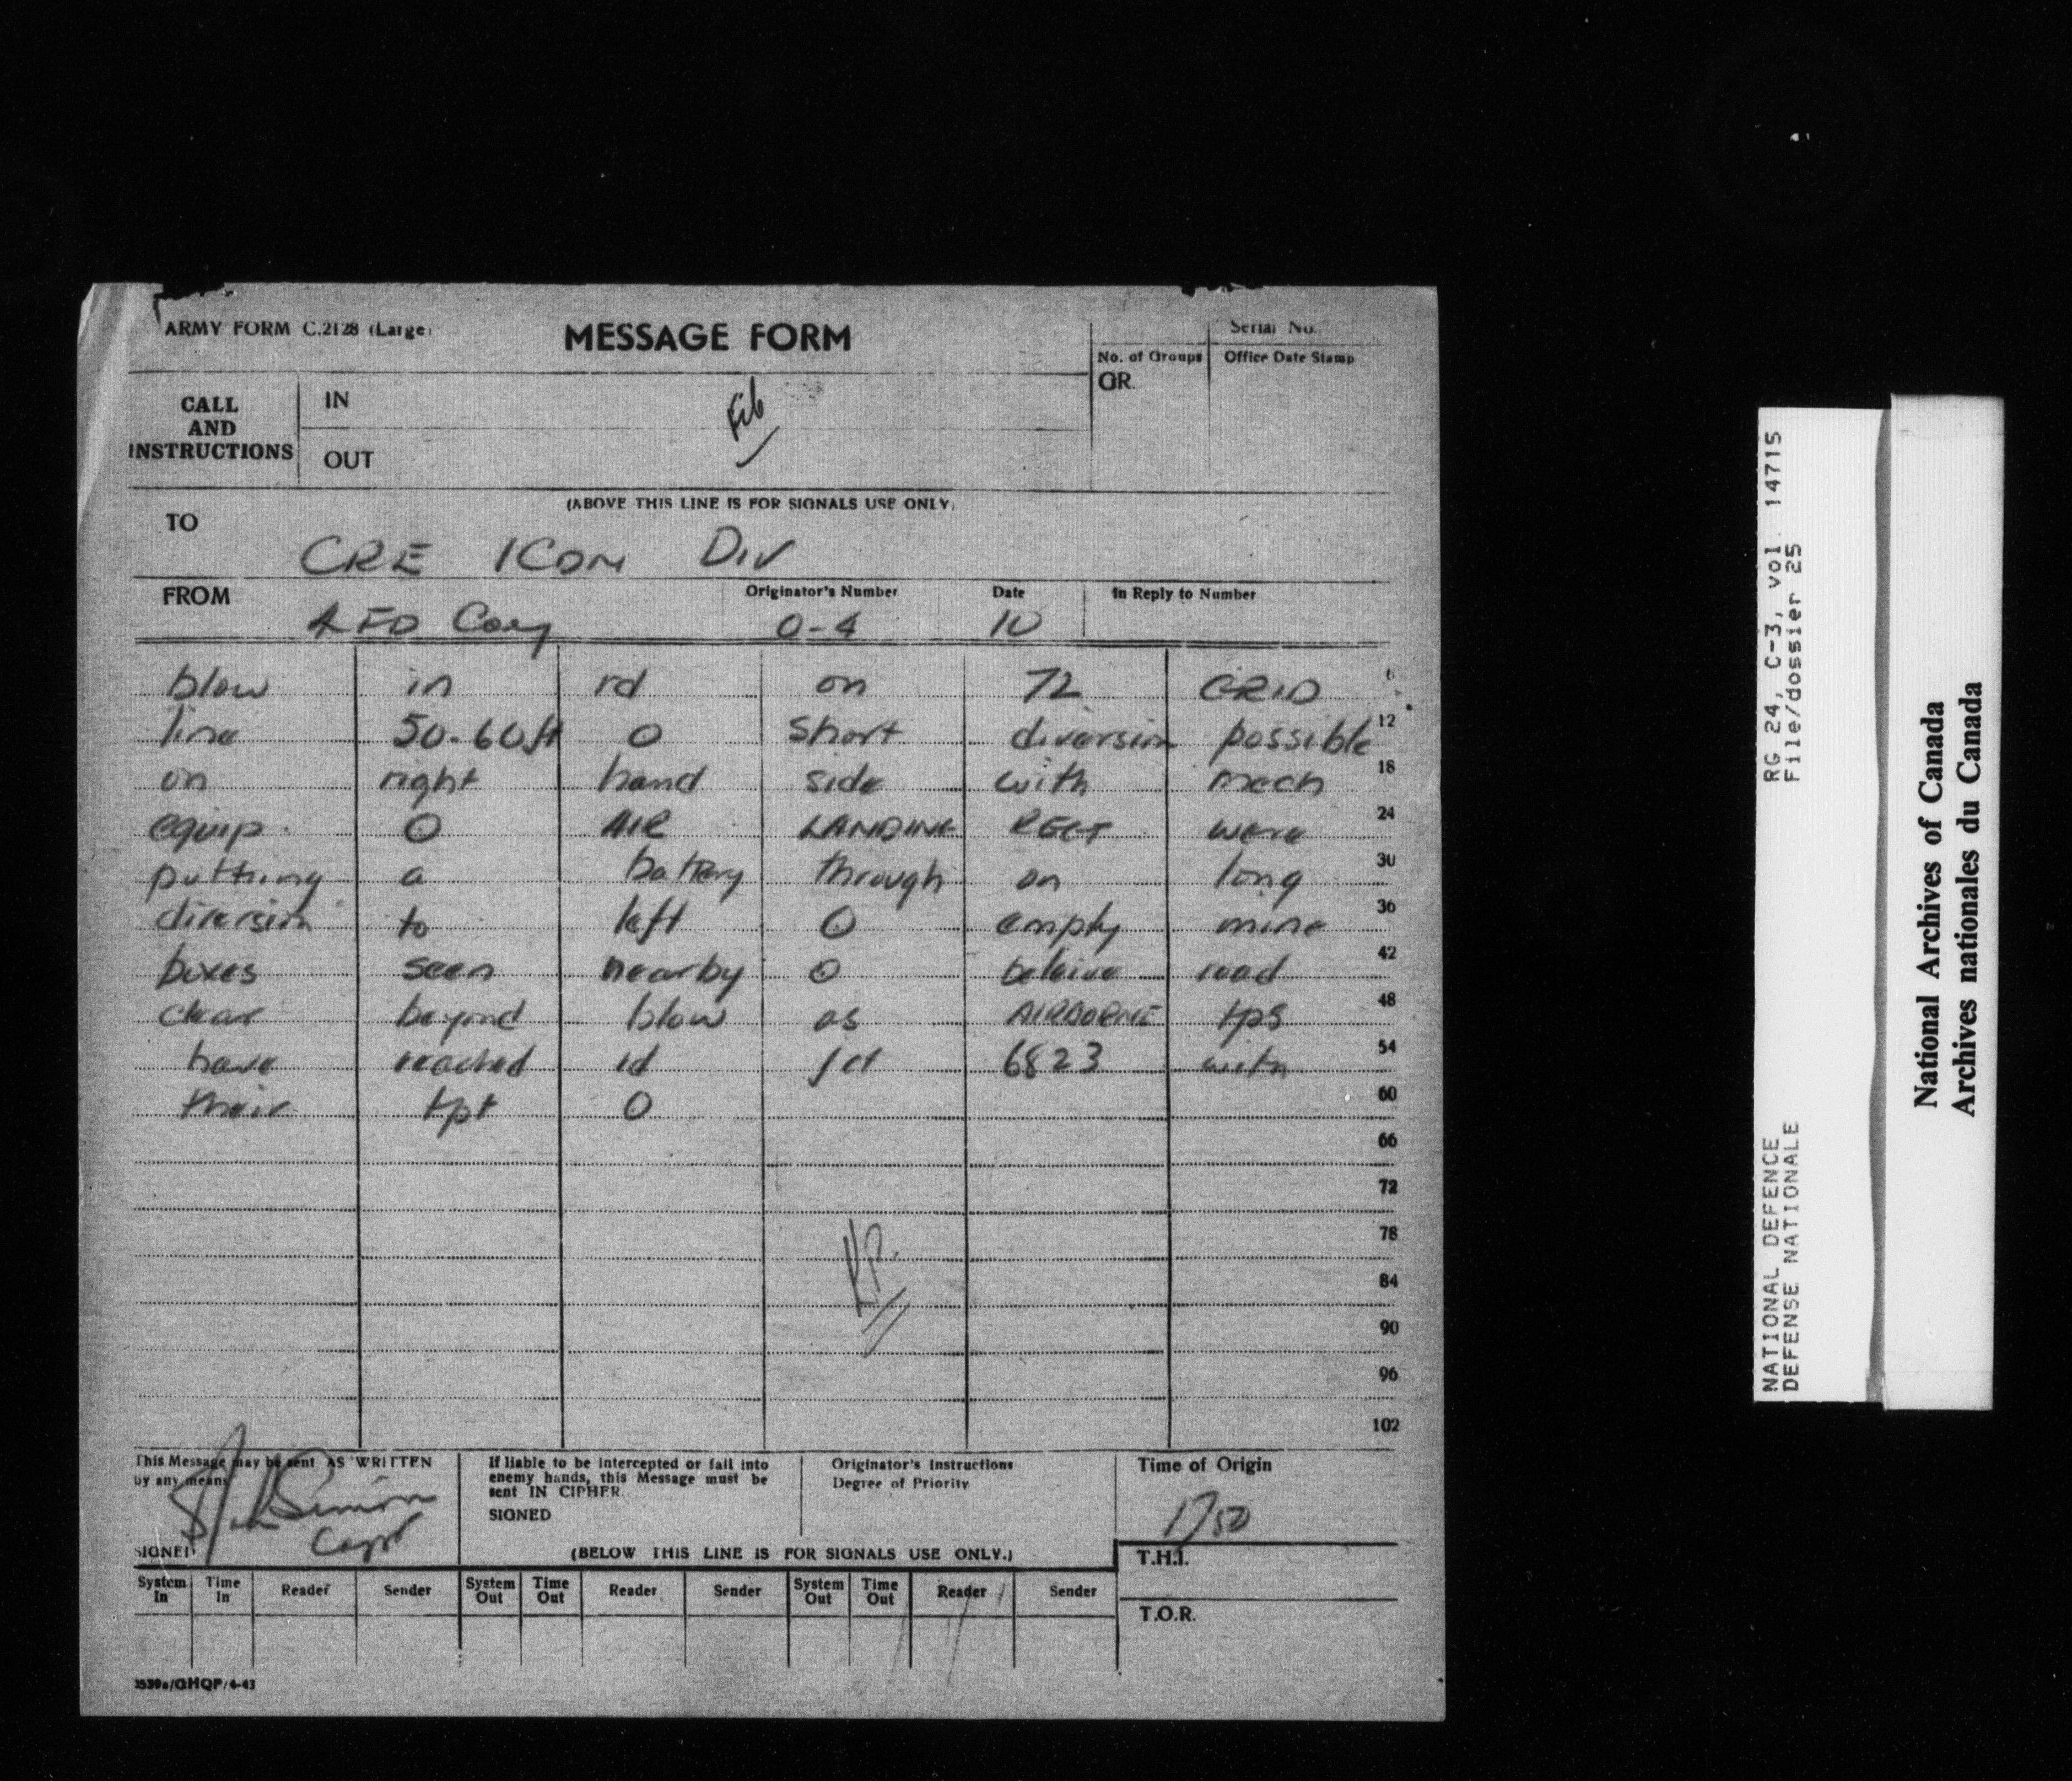 ARMY FORM C.2128 (Large)
MESSAGE FORM
Serial No.
No. of Groups
Office Date Stamp
GR.
CALL AND INSTRUCTIONS
IN
OUT
(ABOVE THIS LINE IS FOR SIGNALS USE ONLY)
TO
CRE 1 CDN DIV
FROM
4 FD Coy
Originator's Number
O-4
Date
10
In Reply to Number
blow in rd on 72 GRID 6
line 50-60 ft O short diversion possible 12
on right hand side with mech 18
equip. O AIR LANDING REGT were 24
putting a battery through on long 30
diversion to left O empty mine 36
boxes seen nearby O beleive road 42
clear beyond blow as AIRBORNE tps 48
have reached rd jct 6823 with 54
their tpt O 60
66
72
78
84
90
96
102
This Message may be sent AS WRITTEN
by any means
Capt
SIGNED
If liable to be intercepted or fall into
enemy hands, this Message must be
sent IN CIPHER
SIGNED
Originator's Instructions
Degree of Priority
Time of Origin
1750
(BELOW THIS LINE IS FOR SIGNALS USE ONLY.)
T.H.I.
System In
Time In
Reader
Sender
System Out
Time Out
Reader
Sender
System Out
Time Out
Reader
Sender
T.O.R.
NATIONAL DEFENCE RG 24, C-3, vol. 14715
DEFENSE NATIONALE File/dossier 25
National Archives of Canada
Archives nationales du Canada